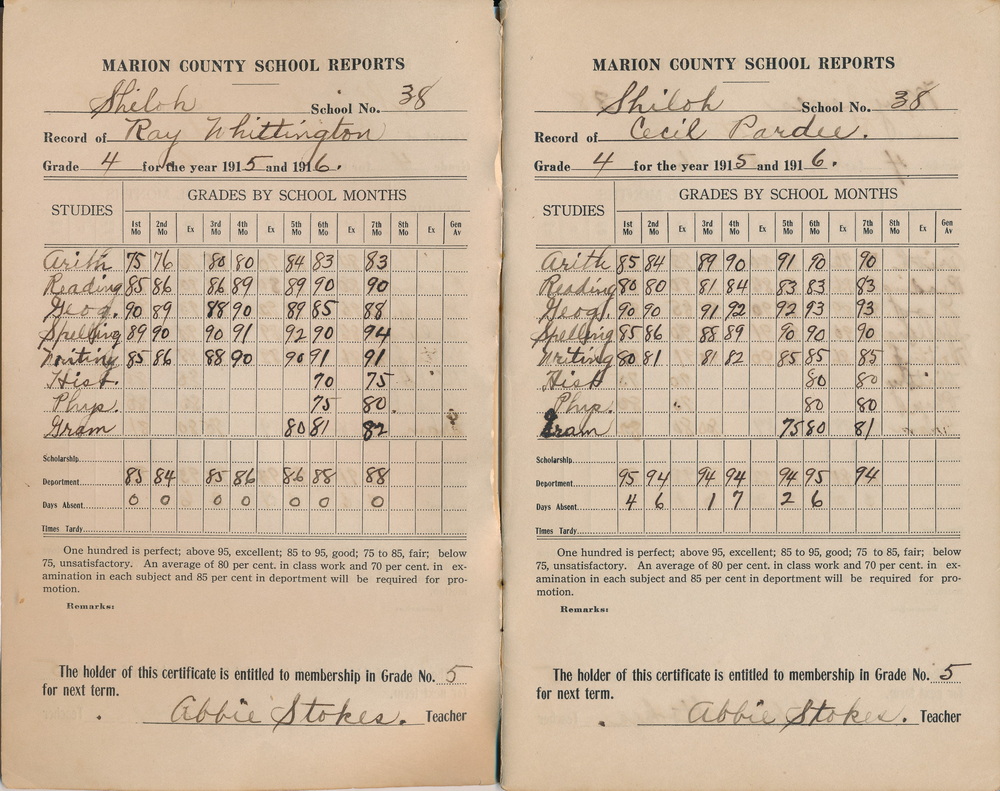 MARION COUNTY SCHOOL REPORTS
Shiloh School No. 38
Record of Ray Whittington
Grade 4 for the year 1915 and 1916.
STUDIES GRADES BY SCHOOL MONTHS
1st Mo 2nd Mo Ex 3rd Mo 4th Mo Ex 5th Mo 6th Mo Ex 7th Mo 8th Mo Ex Gen Av
Arith 75 76 80 80 84 83 83
Reading 85 86 86 89 89 90 90
Geog. 90 89 88 90 89 85 88
Spelling 89 90 90 91 92 90 94
Writing 85 86 88 90 90 91 91
Hist. 70 75
Phys. 75 80
Gram 80 81 82
Scholarship
Department 85 84 85 86 86 88 88
Days Absent 0 0 0 0 0 0 0
Times Tardy
One hundred is perfect; above 95, excellent; 85 to 95, good; 75 to 85, fair; below
75, unsatisfactory. An average of 80 per cent. in class work and 70 per cent. in ex-
amination in each subject and 85 per cent in deportment will be required for pro-
motion.
Remarks:
The holder of this certificate is entitled to membership in Grade No. 5
for next term.
Abbie Stokes. Teacher
MARION COUNTY SCHOOL REPORTS
Shiloh School No. 38
Record of Cecil Pardee.
Grade 4 for the year 1915 and 1916.
STUDIES GRADES BY SCHOOL MONTHS
1st Mo 2nd Mo Ex 3rd Mo 4th Mo Ex 5th Mo 6th Mo Ex 7th Mo 8th Mo Ex Gen Av
Arith 85 84 89 90 91 90 90
Reading 80 80 81 84 83 83 83
Geog. 90 90 91 92 92 93 93
Spelling 85 86 88 89 90 90 90
Writing 80 81 81 82 85 85 85
Hist 80 80
Phys. 80 80
Gram 75 80 81
Scholarship
Department 95 94 94 94 94 95 94
Days Absent 4 6 1 7 2 6
Times Tardy
One hundred is perfect; above 95, excellent; 85 to 95, good; 75 to 85, fair; below
75, unsatisfactory. An average of 80 per cent. in class work and 70 per cent. in ex-
amination in each subject and 85 per cent in deportment will be required for pro-
motion.
Remarks:
The holder of this certificate is entitled to membership in Grade No. 5
for next term.
Abbie Stokes. Teacher